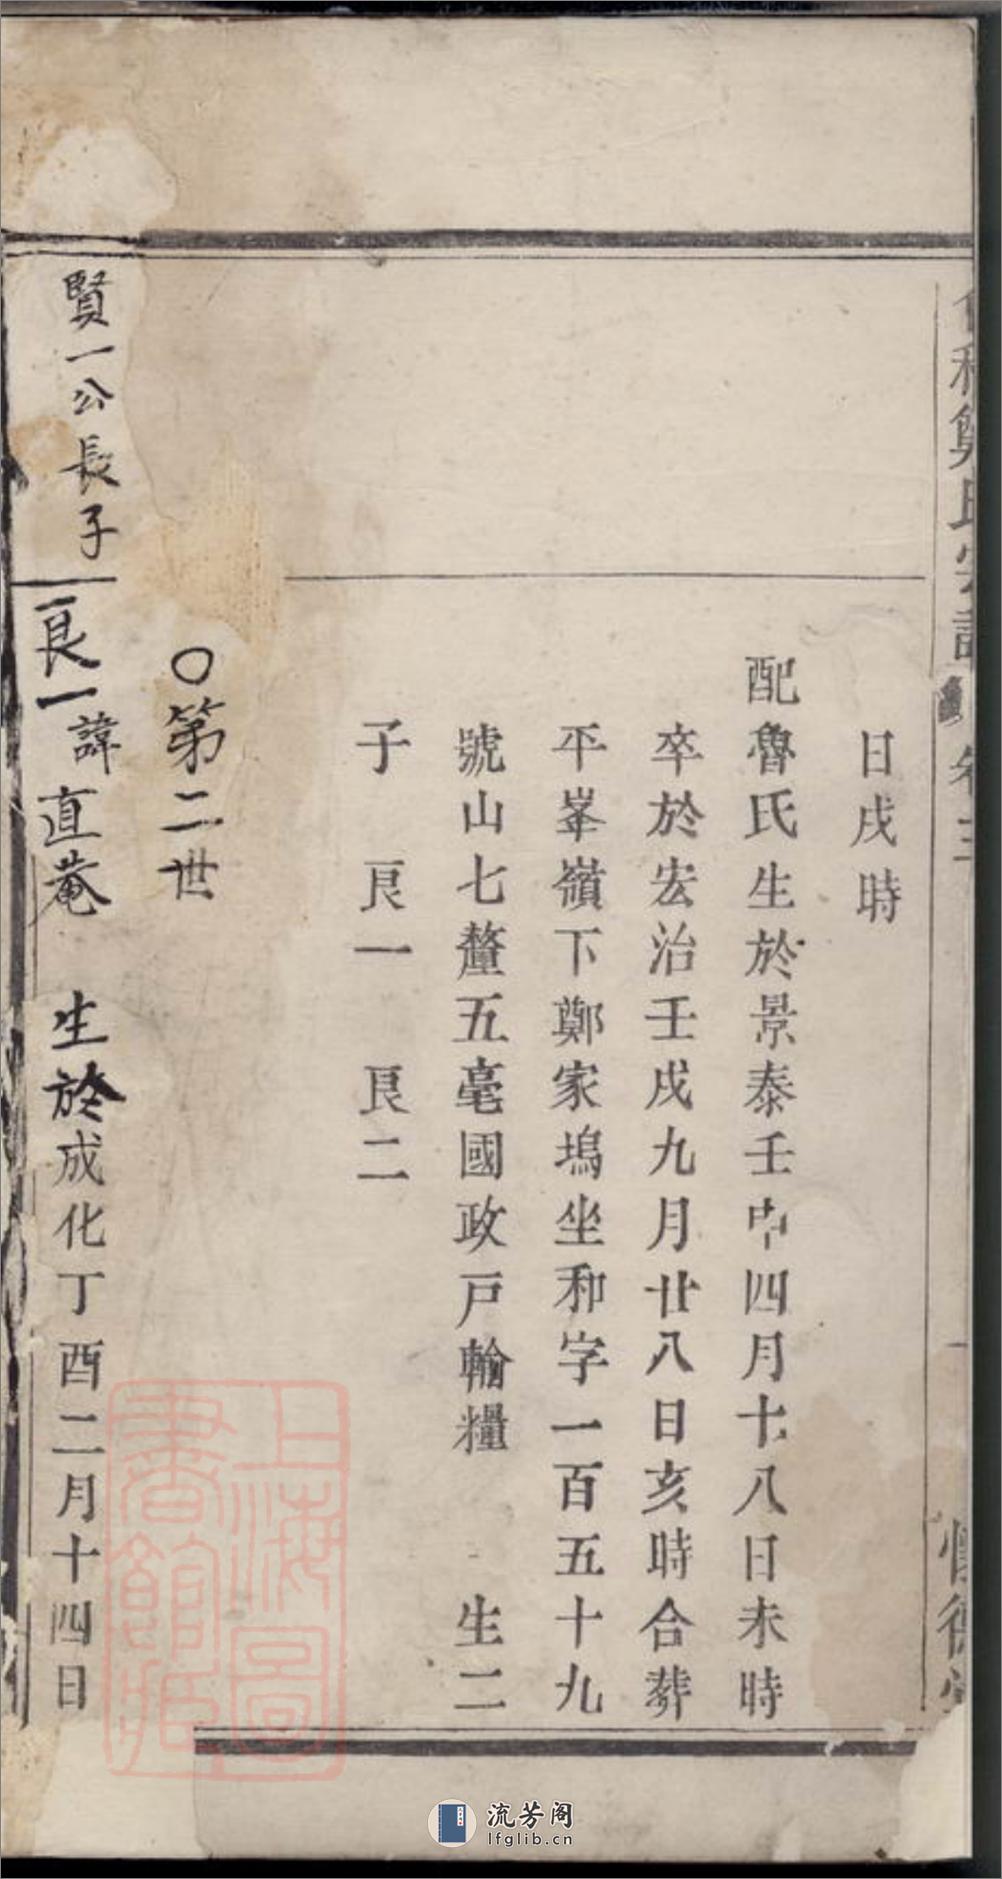 鄭氏宗譜 卷三
日戌時
配魯氏生於景泰壬申四月十八日未時
卒於宏治壬戌九月廿八日亥時合葬
平峯嶺下鄭家塢坐和字一百五十九
號山七釐五毫國政戸輸糧 生二
子 良一 良二
〇第二世
賢一公長子
良一諱直菴 生於成化丁酉二月十四日
上海圖書館藏
流芳阁
lfglib.cn